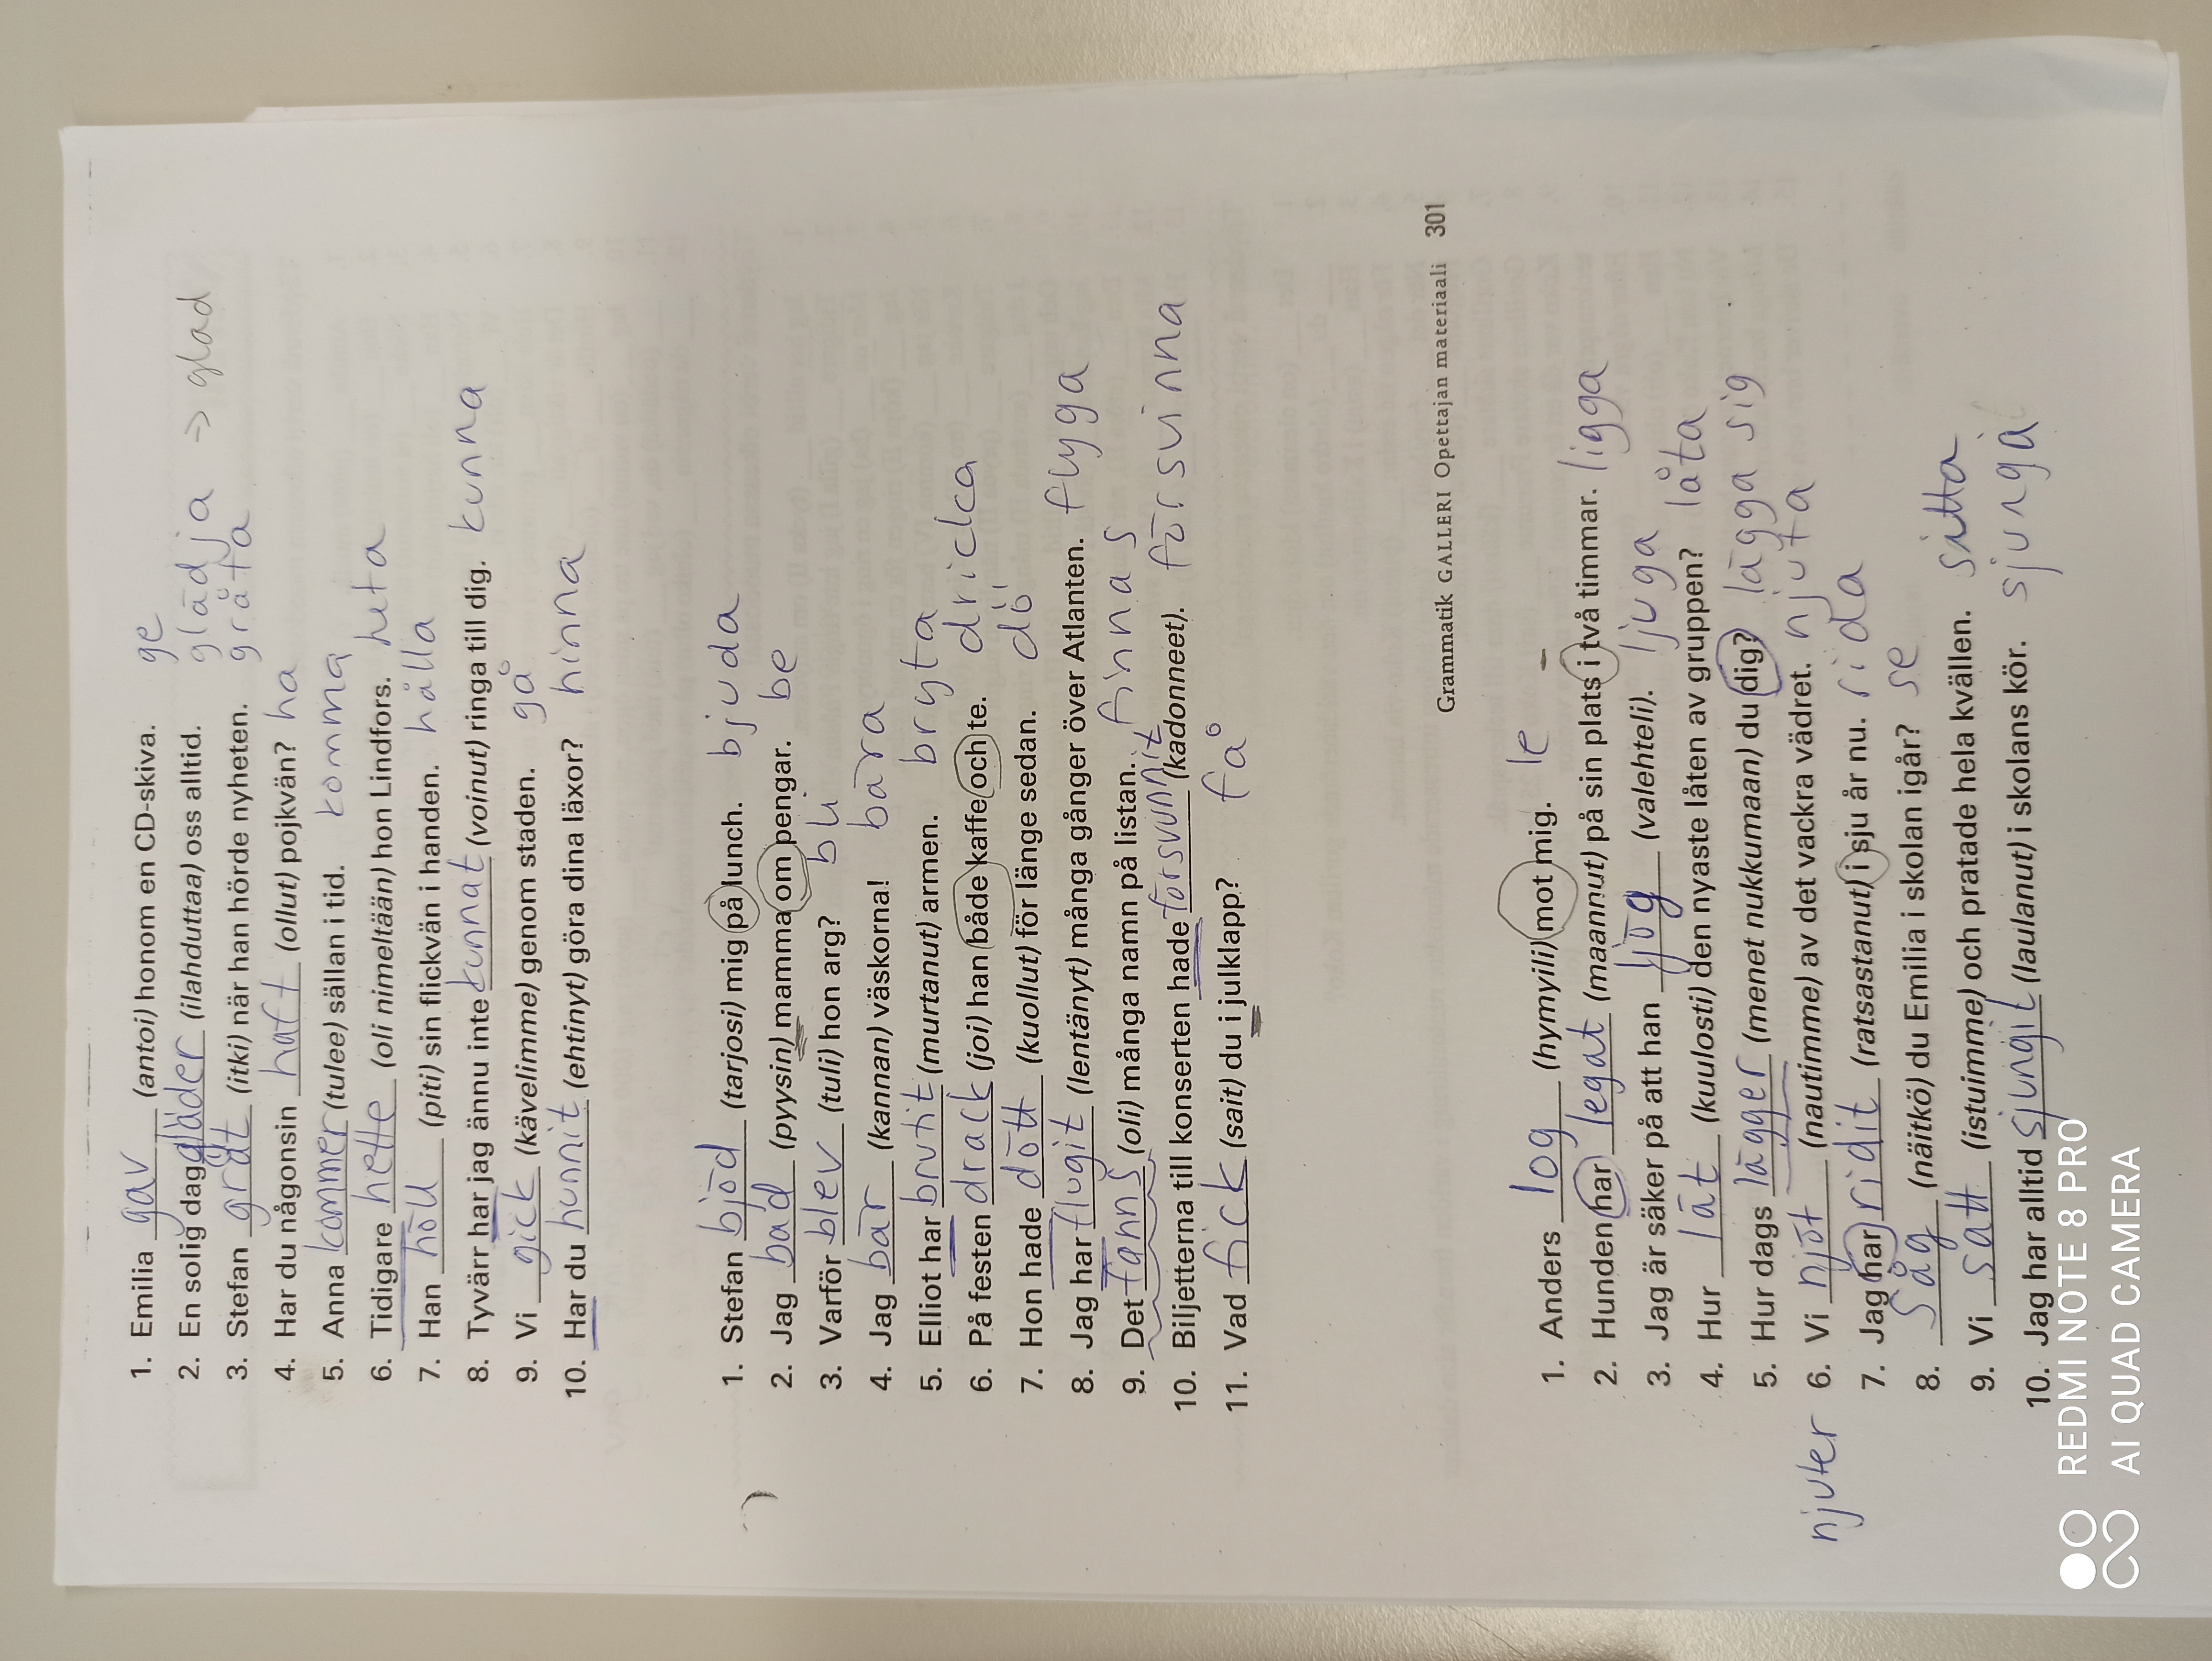 1. Emilia gav (antoi) honom en CD-skiva. ge
2. En solig dag gläder (ilahduttaa) oss alltid. glädja => glad
3. Stefan grät (itki) när han hörde nyheten. gråta
4. Har du någonsin haft (ollut) pojkvän? ha
5. Anna kommer (tulee) sällan i tid. komma
6. Tidigare hette (oli nimeltään) hon Lindfors. heta
7. Han höll (piti) sin flickvän i handen. hålla
8. Tyvärr har jag ännu inte kunnat (voinut) ringa till dig. kunna
9. Vi gick (kävelimme) genom staden. gå
10. Har du hunnit (ehtinyt) göra dina läxor? hinna
1. Stefan bjöd (tarjosi) mig på lunch. bjuda
2. Jag bad (pyysin) mamma om pengar. be
3. Varför blev (tuli) hon arg? bli
4. Jag bär (kannan) väskorna! bära
5. Elliot har brutit (murtanut) armen. bryta
6. På festen drack (joi) han både kaffe och te. dricka
7. Hon hade dött (kuollut) för länge sedan. dö
8. Jag har flugit (lentänyt) många gånger över Atlanten. flyga
9. Det fanns (oli) många namn på listan. finnas
10. Biljetterna till konserten hade försvunnit (kadonneet). försvinna
11. Vad fick (sait) du i julklapp? få
Grammatik GALLERI Opettajan materiaali 301
1. Anders log (hymyili) mot mig. le
2. Hunden har legat (maannut) på sin plats i två timmar. ligga
3. Jag är säker på att han ljög (valehteli). ljuga
4. Hur lät (kuulosti) den nyaste låten av gruppen? låta
5. Hur dags lägger (menet nukkumaan) du dig? lägga sig
njuter 6. Vi njöt (nautimme) av det vackra vädret. njuta
7. Jag har ridit (ratsastanut) i sju år nu. rida
8. Såg (näitkö) du Emilia i skolan igår? se
9. Vi satt (istuimme) och pratade hela kvällen. sitta
10. Jag har alltid sjungit (laulanut) i skolans kör. sjunga
REDMI NOTE 8 PRO
AI QUAD CAMERA